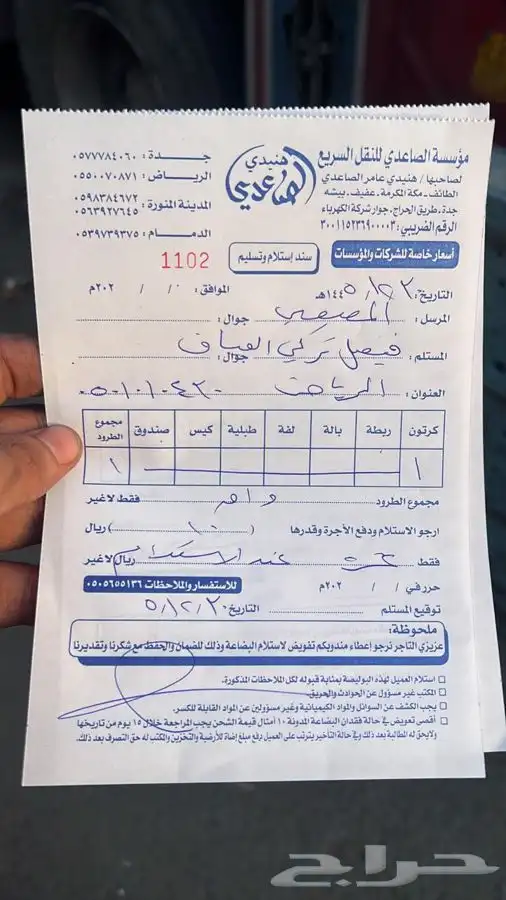 مؤسسة الصاعدي للنقل السريع
لصاحبها / هنيدي عامر الصاعدي
الطائف - مكة المكرمة - عفيف - بيشه
جدة - طريق الحراج - جوار شركة الكهرباء
الرقم الضريبي: ٣٠٠١١٥٢٣٦٩٠٠٠٠٣
هنيدي الصاعدي
جدة: ٠٥٧٧٧٨٤٠٦٠
الرياض: ٠٥٥٠٠٧٠٨٧١
المدينة المنورة: ٠٥٩٨٣٨٤٦٧٢
٠٥٦٣٩٢٧٦٤٥
الدمام: ٠٥٣٩٧٣٩٣٧٥
أسعار خاصة للشركات والمؤسسات
سند إستلام وتسليم
1102
التاريخ: ١٤٤٥/١٢/٣هـ الموافق: / / ٢٠٢م
المرسل: جوال:
المستلم: فيصل تركي جوال:
العنوان: الرياض ٠٥٠١٠١٠٤٢٠
كرتون ربطة بالة لفة طبلية كيس صندوق مجموع الطرود
١ ١
مجموع الطرود واحد فقط لا غير
ارجو الاستلام ودفع الأجرة وقدرها ( ١٠ ) ريال
فقط عشرة عند الاستلام ريال لاغير
حرر في / / ٢٠٢م للاستفسار والملاحظات ٠٥٠٥٦٥٥١٣٦
توقيع المستلم التاريخ: ٥/١٢/٣
ملحوظة:
عزيزي التاجر نرجو إعطاء مندوبكم تفويض لاستلام البضاعة وذلك للضمان والحفظ مع شكرنا وتقديرنا
استلام العميل لهذه البوليصة بمثابة قبوله لكل الملاحظات المذكورة.
المكتب غير مسؤول عن الحوادث والحريق.
يجب الكشف عن السوائل والمواد الكيميائية وغير مسؤولين عن المواد القابلة للكسر.
أقصى تعويض في حالة فقدان البضاعة المدونة ١٠ أمثال قيمة الشحن يجب المراجعة خلال ١٥ يوم من تاريخها
ولايحق له المطالبة بعد ذلك وفي حالة التأخير يترتب على العميل دفع مبلغ إضافة للأرضية والتخزين والمكتب له حق التصرف بعد ذلك.
حراج